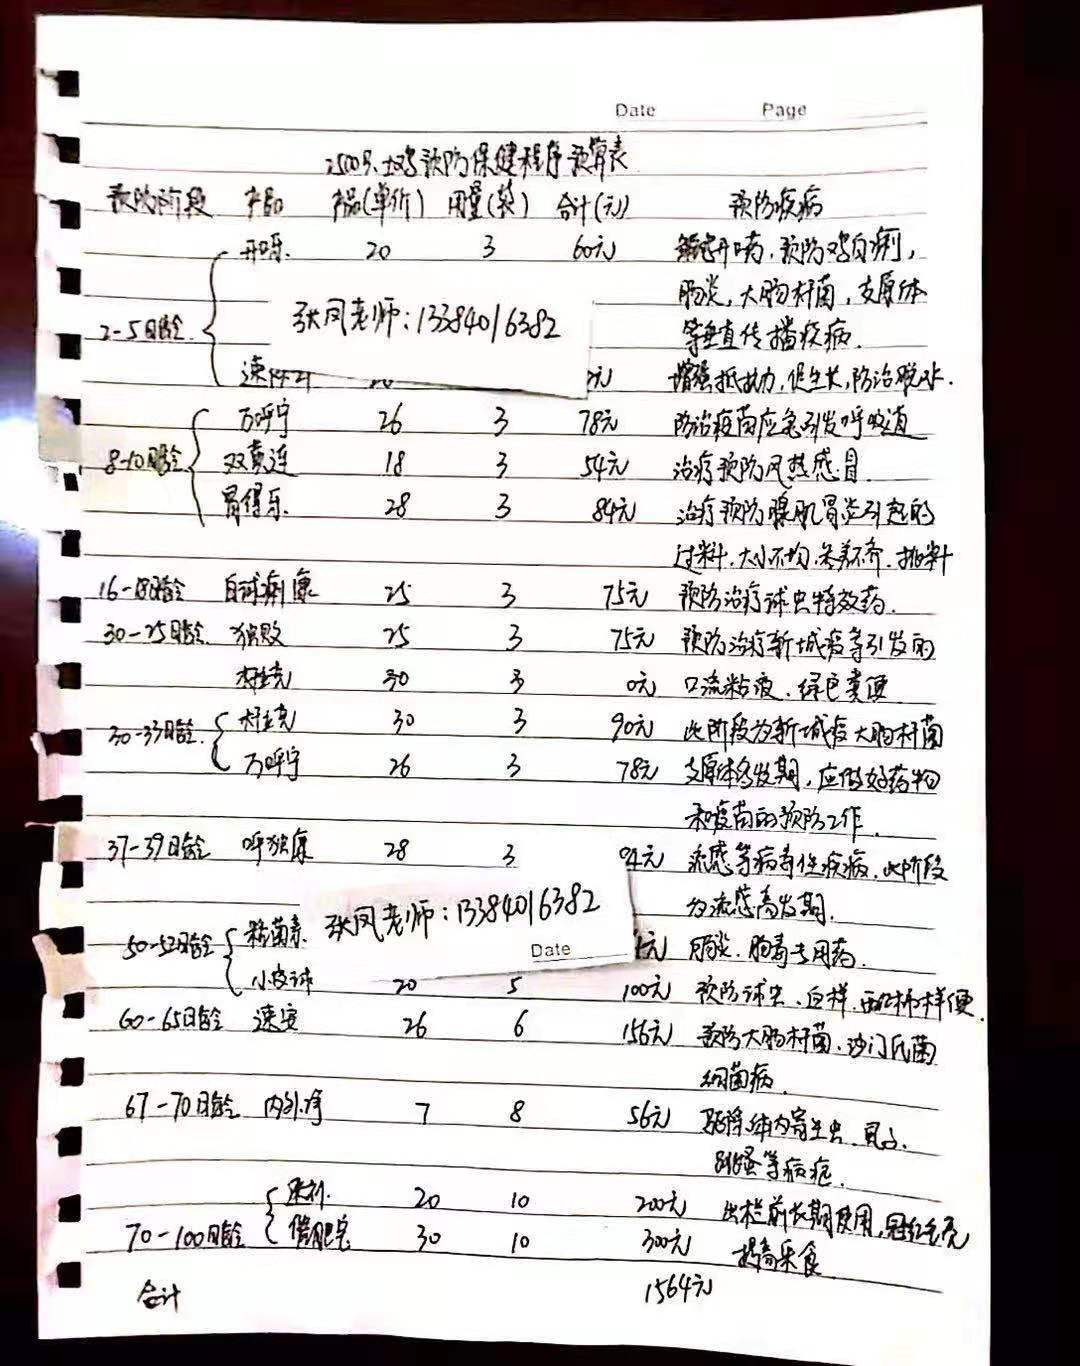 Date Page
2500只土鸡预防保健程序预算表
预防阶段 产品 产品(单价) 用量(袋) 合计(元) 预防疾病
开口乐 20 3 60元 雏鸡开口药,预防鸡白痢,
肠炎,大肠杆菌,支原体
张凤老师:13384016382
2-5日龄 等垂直传播疾病.
速 元 增强抵抗力,促生长,防治脱水.
万呼宁 26 3 78元 防治疫苗应急引发呼吸道
8-10日龄 双黄连 18 3 54元 治疗预防风热感冒.
胃得乐 28 3 84元 治疗预防腺肌胃炎引起的
过料,大小不均,来养不齐,抛料
16-18日龄 白球痢康 25 3 75元 预防治疗球虫特效药.
30-25日龄 独败 25 3 75元 预防治疗新城疫等引发的
杆立克 30 3 0元 口流粘液,绿色粪便
30-33日龄 杆立克 30 3 90元 此阶段为新城疫大肠杆菌
万呼宁 26 3 78元 支原体多发期,应做好药物
和疫苗的预防工作.
37-39日龄 呼独康 28 3 流感等病毒性疾病,此阶段
为流感高发期.
张凤老师:13384016382
Date
50-52日龄 粘菌素 元 肠炎,肠毒专用药.
小皮球 20 5 100元 预防球虫、白样、西红柿样便.
60-65日龄 速安 26 6 156元 预防大肠杆菌,沙门氏菌
细菌病.
67-70日龄 内外净 7 8 56元 驱除体内寄生虫、虱子、
跳蚤等病疤.
20 10 200元 出栏前长期使用,冠红毛亮
70-100日龄 催肥宝 30 10 300元 提高采食
合计 1564元